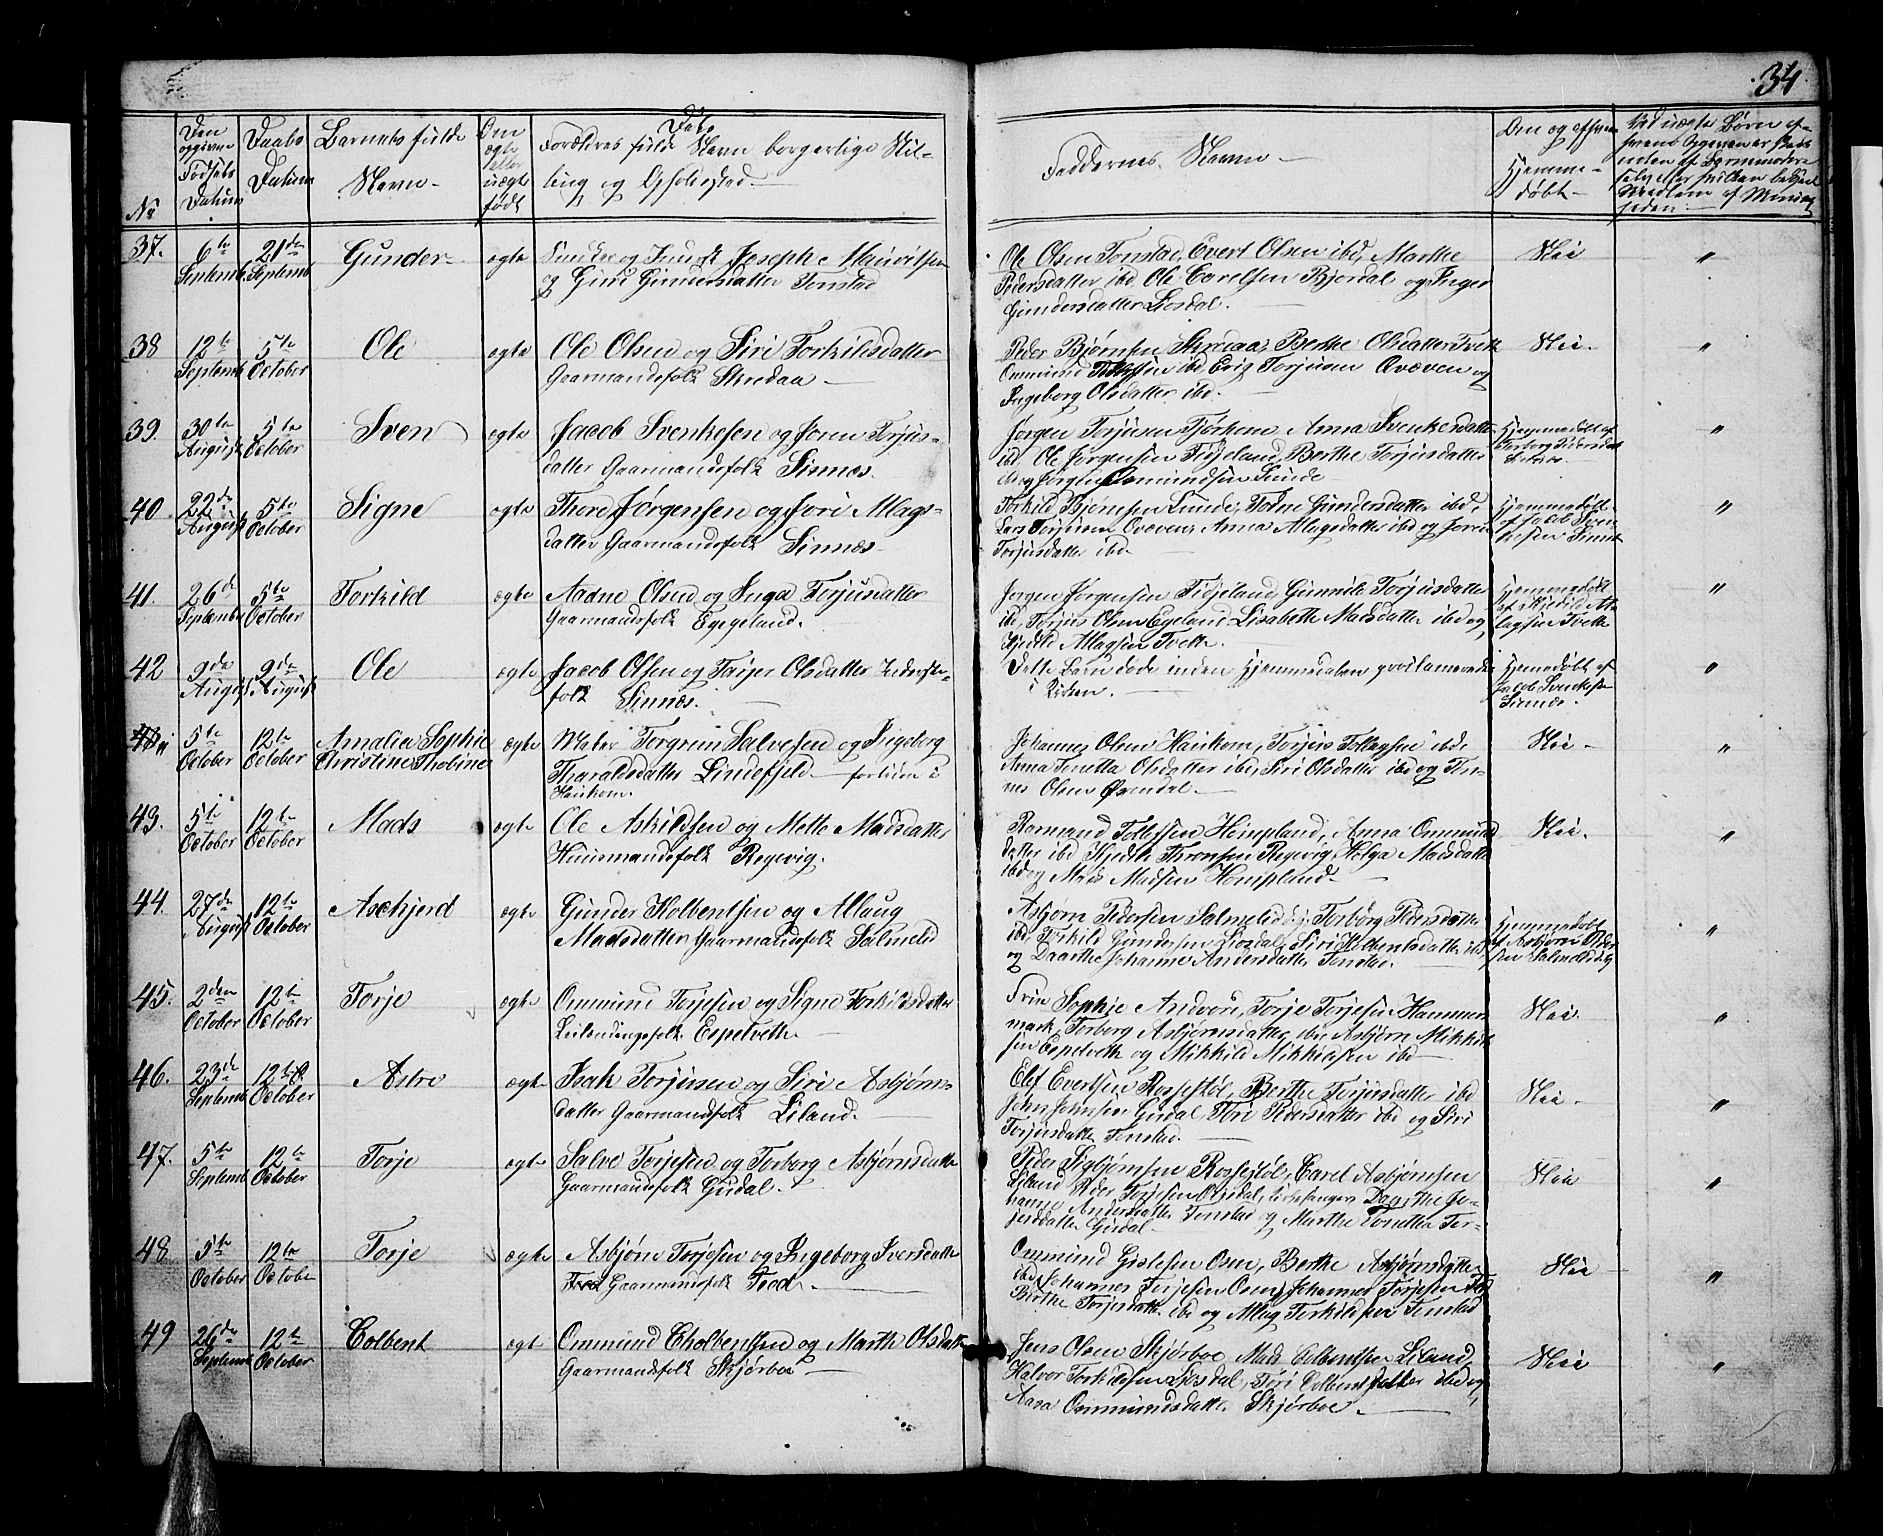 34
No
Den opgivne Fødsels Datum
Daabs Datum
Barnets fulde Navn
Den ægte eller uægte født
Forældres fulde Navn borgerlige Stilling og Opholdssted
Faddernes Navn
hjemmedøbt
37. 6te Septemb 21de Septemb Gunder ægte Joseph Mauritsen
og Guri Gundersdatter Tonstad
Ole Olsen Tonstad, Evert Olsen ibd, Marthe
Pedersdatter ibd Ole Carelsen Bjordal og Inger
Gundersdatter Liosdal.
Nei "
38 12te Septemb 5te October Ole ægte Ole Olsen og Siri Torkildsdatter
Gaarmandsfolk Skredaa
Peder Bjørnsen Skredaa Berthe Olsdatter Tvett
Ommund ibd Torjusen Qvæven og
Ingeborg Olsdatter ibd.
Nei "
39. 30te August 5te October Sven ægte Jacob Svenkesen og Joren Torjus-
datter Gaarmandsfolk Sinnes.
Jørgen Torjusen Tjørhom Anna Svenkesdatter
ibd. Ole Jørgensen Fidjeland, Berthe Torjusdatter
ibd og Jørgen Ommundsen Sunde
Hjemmedøbt af
"
40. 22de August 5te October Signe ægte Thore Jørgensen og Jori Alags-
datter Gaarmandsfolk Sinnes
Torkild Bjørnsen Sunde, Tone Gundersdatter ibd,
Lars Torjusen Qvæven, Anna Alagsdatter ibd og Joren
Torjusdatter ibd
Hjemmedøbt
af Jacob Sven
kesen Sunde
"
41. 26de September 5te October Torkild ægte Aadne Olsen og Inga Torjusdatter
Gaarmandsfolk Egeland.
Jørgen Jørgensen Fidjeland Gunnild Torjusdatter
ibd, Torjus Olsen Egeland Lisabeth Madsdatter ibd og
Kjedild Allagsen Tvett.
Hjemmedøbt
af Kjedild Al-
lagsen Tvette
"
42 9de August 9de August Ole ægte Jacob Olsen og Tarjer Olsdatter Inderste-
folk Sinnes.
Dette Barn døde inden Hjemmedaaben
i Kirken.
Hjemedøbt af
Jacob Svenkesen
Sunde.
"
5te October 12te October Amalia Sophie
Christine Thobine
ægte Maler Torgrim Salvesen og Ingeborg
Tharaldsdatter Lindefjeld. for tiden i
Haukom.
Johannes Olsen Haukom, Torjus Tollagsen ibd,
Anna Tonetta Olsdatter ibd, Siri Olsdatter ibd og Tøn-
nes Olsen Øvendal.
Nei "
43. 5te October 12te October Mads ægte Ole Askildsen og Mette Madsdatter
Huusmandsfolk Regevig.
Rasmund Tollefsen Hompland, Anna Ommund
datter ibd Kjedil Thronsen Regevig Helga Madsdatter
ibd og Mads Madsen Hompland
Nei. "
44. 27de August 12te October Aschjerd ægte Gunder Kolbentsen og Allaug
Madsdatter Gaarmandsfolk Salmelid
Asbjørn Pedersen Salmelid, Torborg Pedersdatter
ibd, Torkild Gundersen Liosdal, Siri Kolbentsdatter ibd,
og Daarthe Johanne Andersdatter Tonstad.
Hjemmedøbt
af Asbjørn Peder
sen Salmelid
"
45. 2den October 12te October Torje ægte Ommund Torjesen og Signe Torkildsdatter
Leilendingsfolk Espetvedt
Sophie Torje Torjesen Hammer
mark, Torborg Asbjørnsdatter ibd Asbjørn Mikkel
sen Espetvedt og Mikkild Mikkildsen ibd
Nei. "
46. 23de Septemb 12te October Astri ægte Isak Torjusen og Siri Asbjørns-
datter Gaarmandsfolk Liland.
Elef Evertsen Rossestøl, Berthe Torjusdatter ibd
John Johnsen Gudal, Tori Pedersdatter ibd og Siri
Torjusdatter Tonstad.
Nei "
47. 5te Septemb 12te October Torje ægte Salve Torjesen og Torborg Asbjørnsdatter
Gaarmandsfolk Gudal.
Peder Sigbjørnsen Rossestøl, Carel Asbjørnsen
Liland Peder Torjesen Kirkesanger Daarthe Jo-
hanne Andersdatter Tonstad og Marthe Tonetta Tor-
jusdatter Gudal
Nei "
48 5te October 12te October Torje ægte Asbjørn Torjesen og Ingeborg Iversdatter
Gaarmandsfolk Fred
Ommund Gislesen Osen, Berthe Asbjørnsdatter
ibd, Johannes Torjesen Osen, Johannes Torjesen
Berthe Torjesdatter ibd og Allag Torkildsen Tonstad
Nei "
49 26de Septemb 12te October Colbent ægte Ommund Cholbentsen og Marthe Olsdatter
Gaarmandsfolk Skjørboe
Jens Olsen Skjørboe Mads Colbentsen Liland
Halvor Torkildsen Liosdal, Tori Colbentsdatter ibd og
Aasa Ommundsdatter Skjørboe.
Nei "